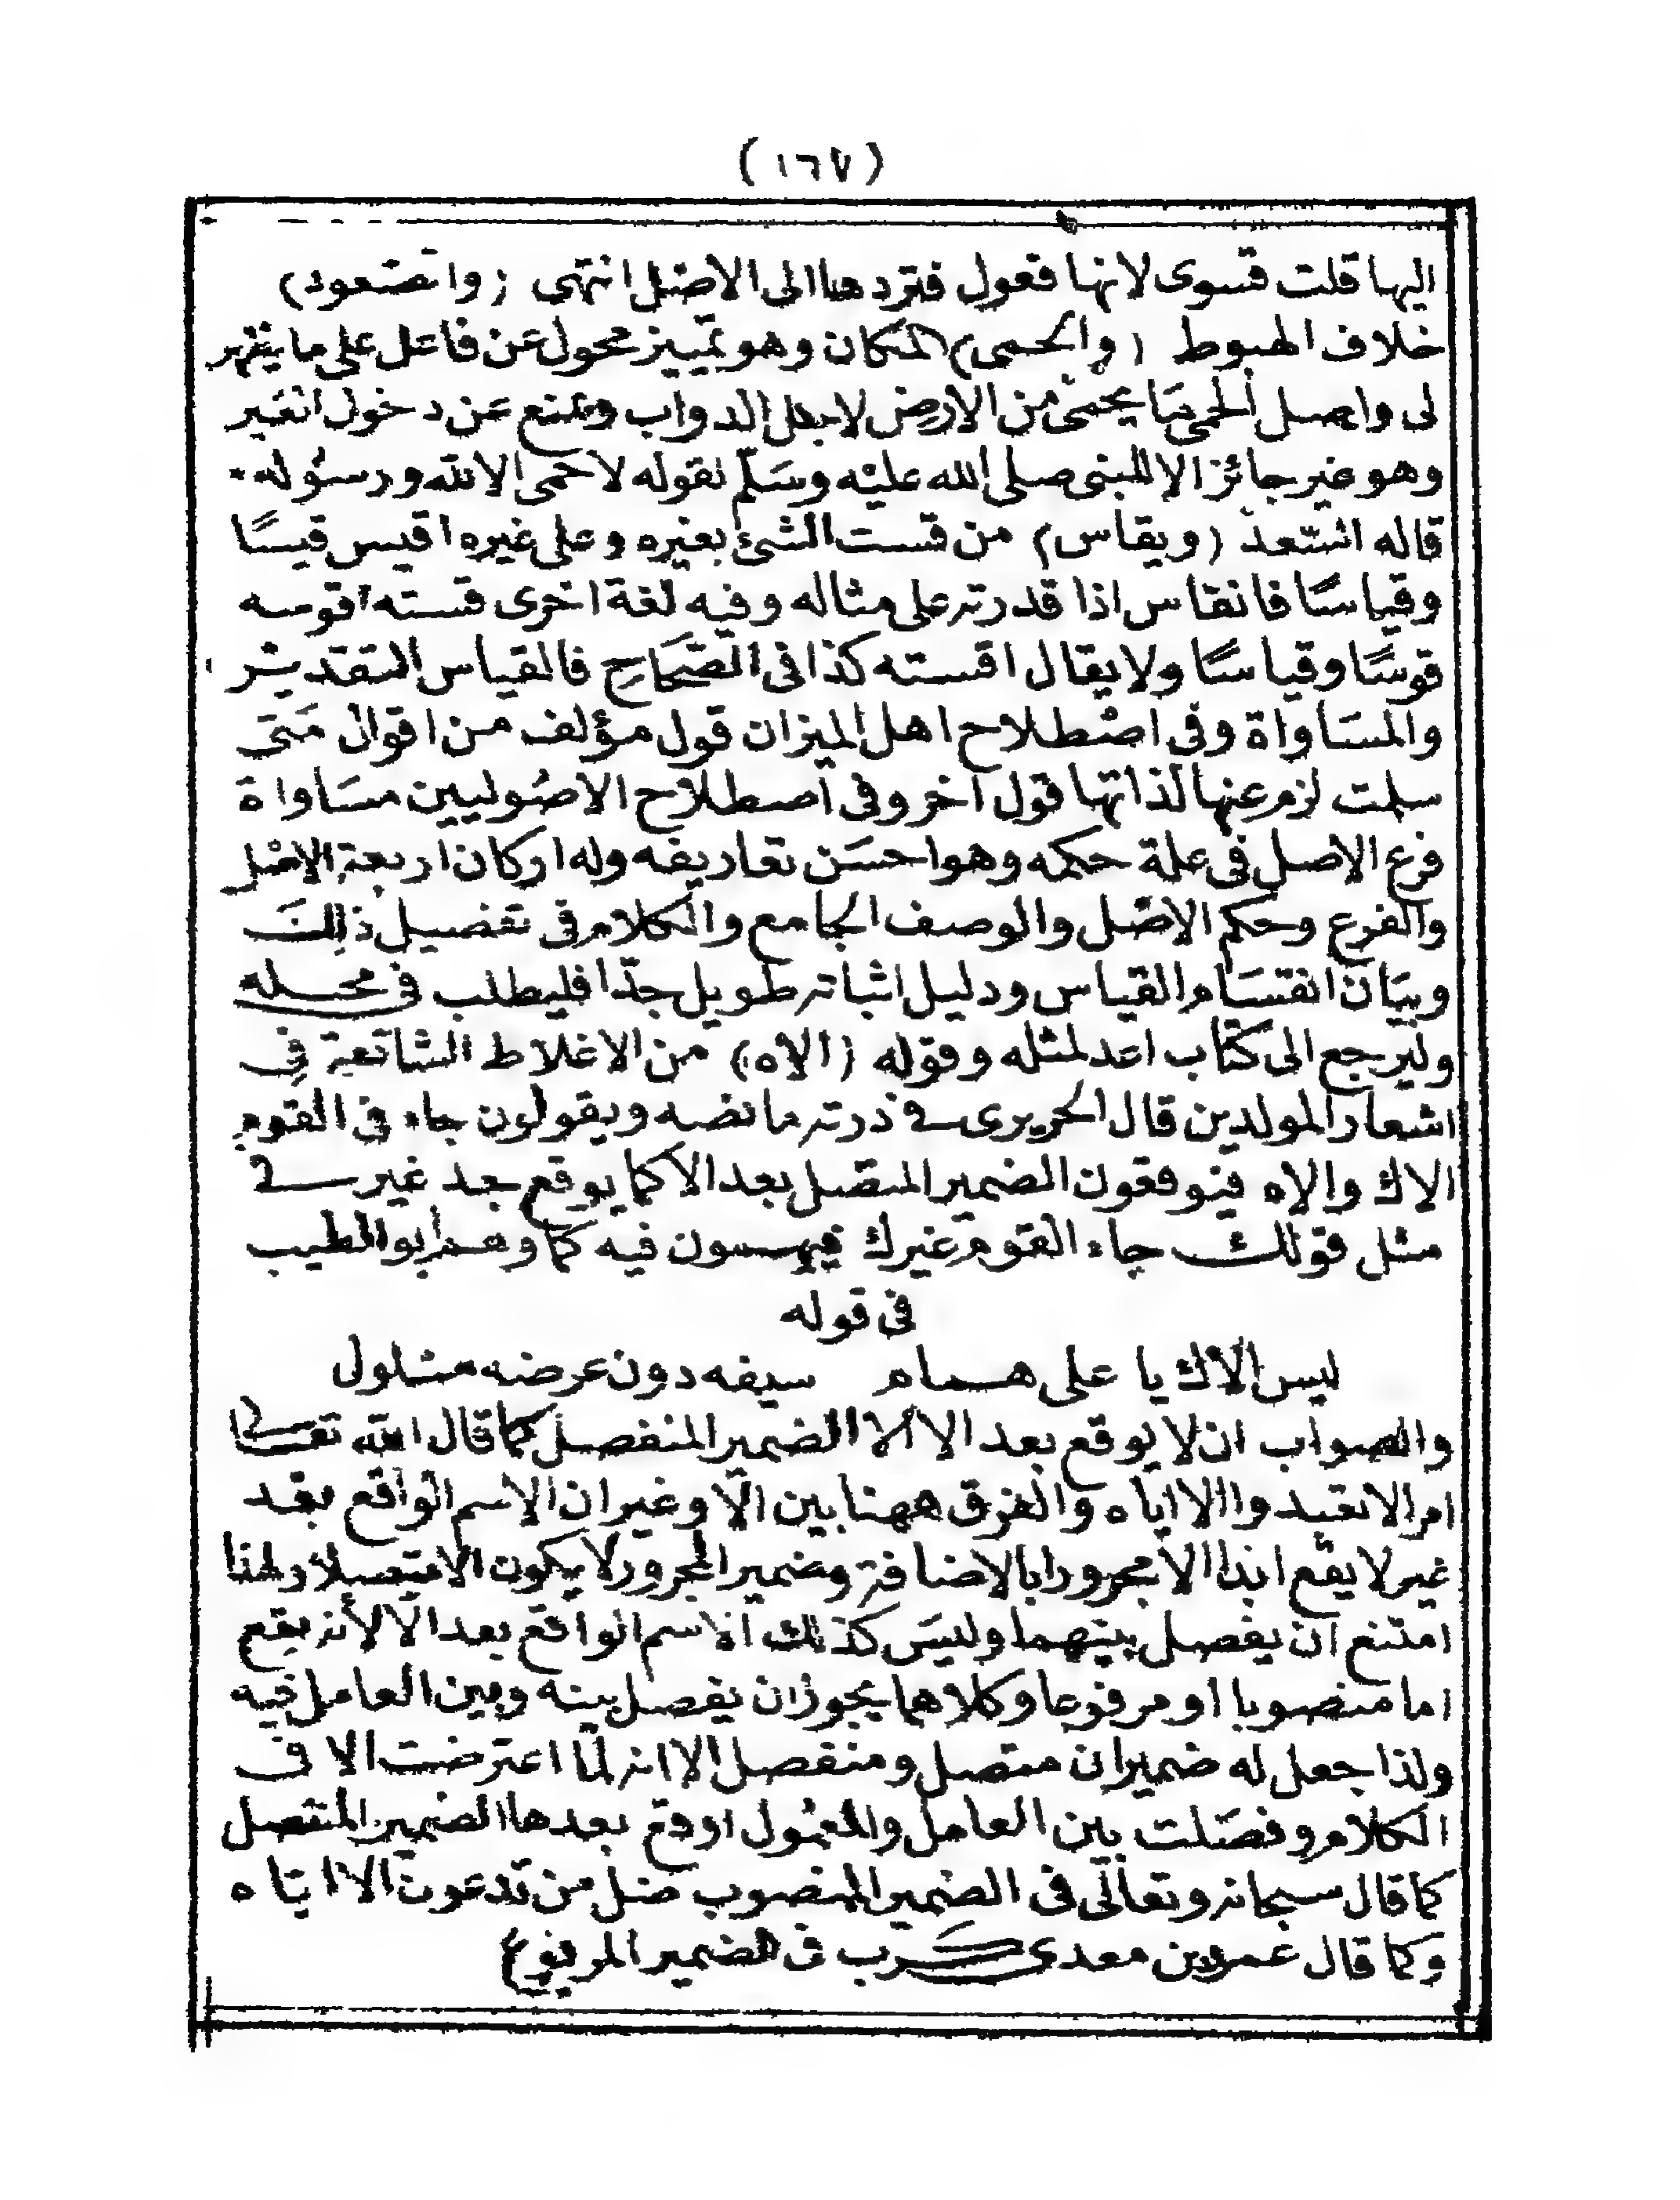 (١٦٧)
اليها قلت قسوى لانها فعول فتردها الى الاصل انتهى (والصعود)
خلاف الهبوط (والحمى) المكان وهو تمييز محول عن فاعل على ما يظهر
لى واصل الحمى ما يحمى من الارض لاجل الدواب ويمنع عن دخول الغير
وهو غير جائز الا للنبى صلى الله عليه وسلم لقوله لا حمى الا لله ورسوله
قاله السعد (ويقاس) من قست الشئ بغيره وعلى غيره اقيس قيسًا
وقياسًا فانقاس اذا قدرته على مثاله وفيه لغة اخرى قسته اقوسه
قوسًا وقياسًا ولا يقال اقسته كذا فى الصحاح فالقياس التقدير
والمساواة وفى اصطلاح اهل الميزان قول مؤلف من اقوال متى
سلمت لزم عنها لذاتها قول آخر وفى اصطلاح الاصوليين مساواة
فرع الاصل فى علة حكمه وهو احسن تعاريفه وله اركان اربعة الاصل
والفرع وحكم الاصل والوصف الجامع والكلام فى تفصيل ذلك
وبيان انقسام القياس ودليل اثباته طويل جدّا فليطلب فى محله
وليرجع الى كتاب اعد لمثله وقوله (الاه) من الاغلاط الشائعة فى
اشعار المولدين قال الحريرى فى درته ما نصه ويقولون جاء فى القوم
الاك والاه فيوقعون الضمير المتصل بعد الا كما يوقع بعد غير فى
مثل قولك جاء القوم غيرك فيهمون فيه كما وهم ابو الطيب
فى قوله
ليس الاك يا على همام سيفه دون عرضه مسلول
والصواب ان لا يوقع بعد الا الا الضمير المنفصل كما قال الله تعالى
امر الا تعبدوا الا اياه والفرق ههنا بين الّا وغير ان الاسم الواقع بعد
غير لا يقع ابدا الا مجرورا بالاضافة وضمير المجرور لا يكون الا متصلا ولهذا
امتنع ان يفصل بينهما وليس كذلك الاسم الواقع بعد الا لأنه يقع
اما منصوبا او مرفوعا وكلاهما يجوز ان يفصل بينه وبين العامل فيه
ولذا جعل له ضميران متصل ومنفصل الا انه لما اعترضت الا فى
الكلام وفصلت بين العامل والمعمول اوقع بعدها الضمير المنفصل
كما قال سبحانه وتعالى فى الضمير المنصوب ضل من تدعون الا اياه
وكما قال عمرو بن معدى كرب فى الضمير المرفوع